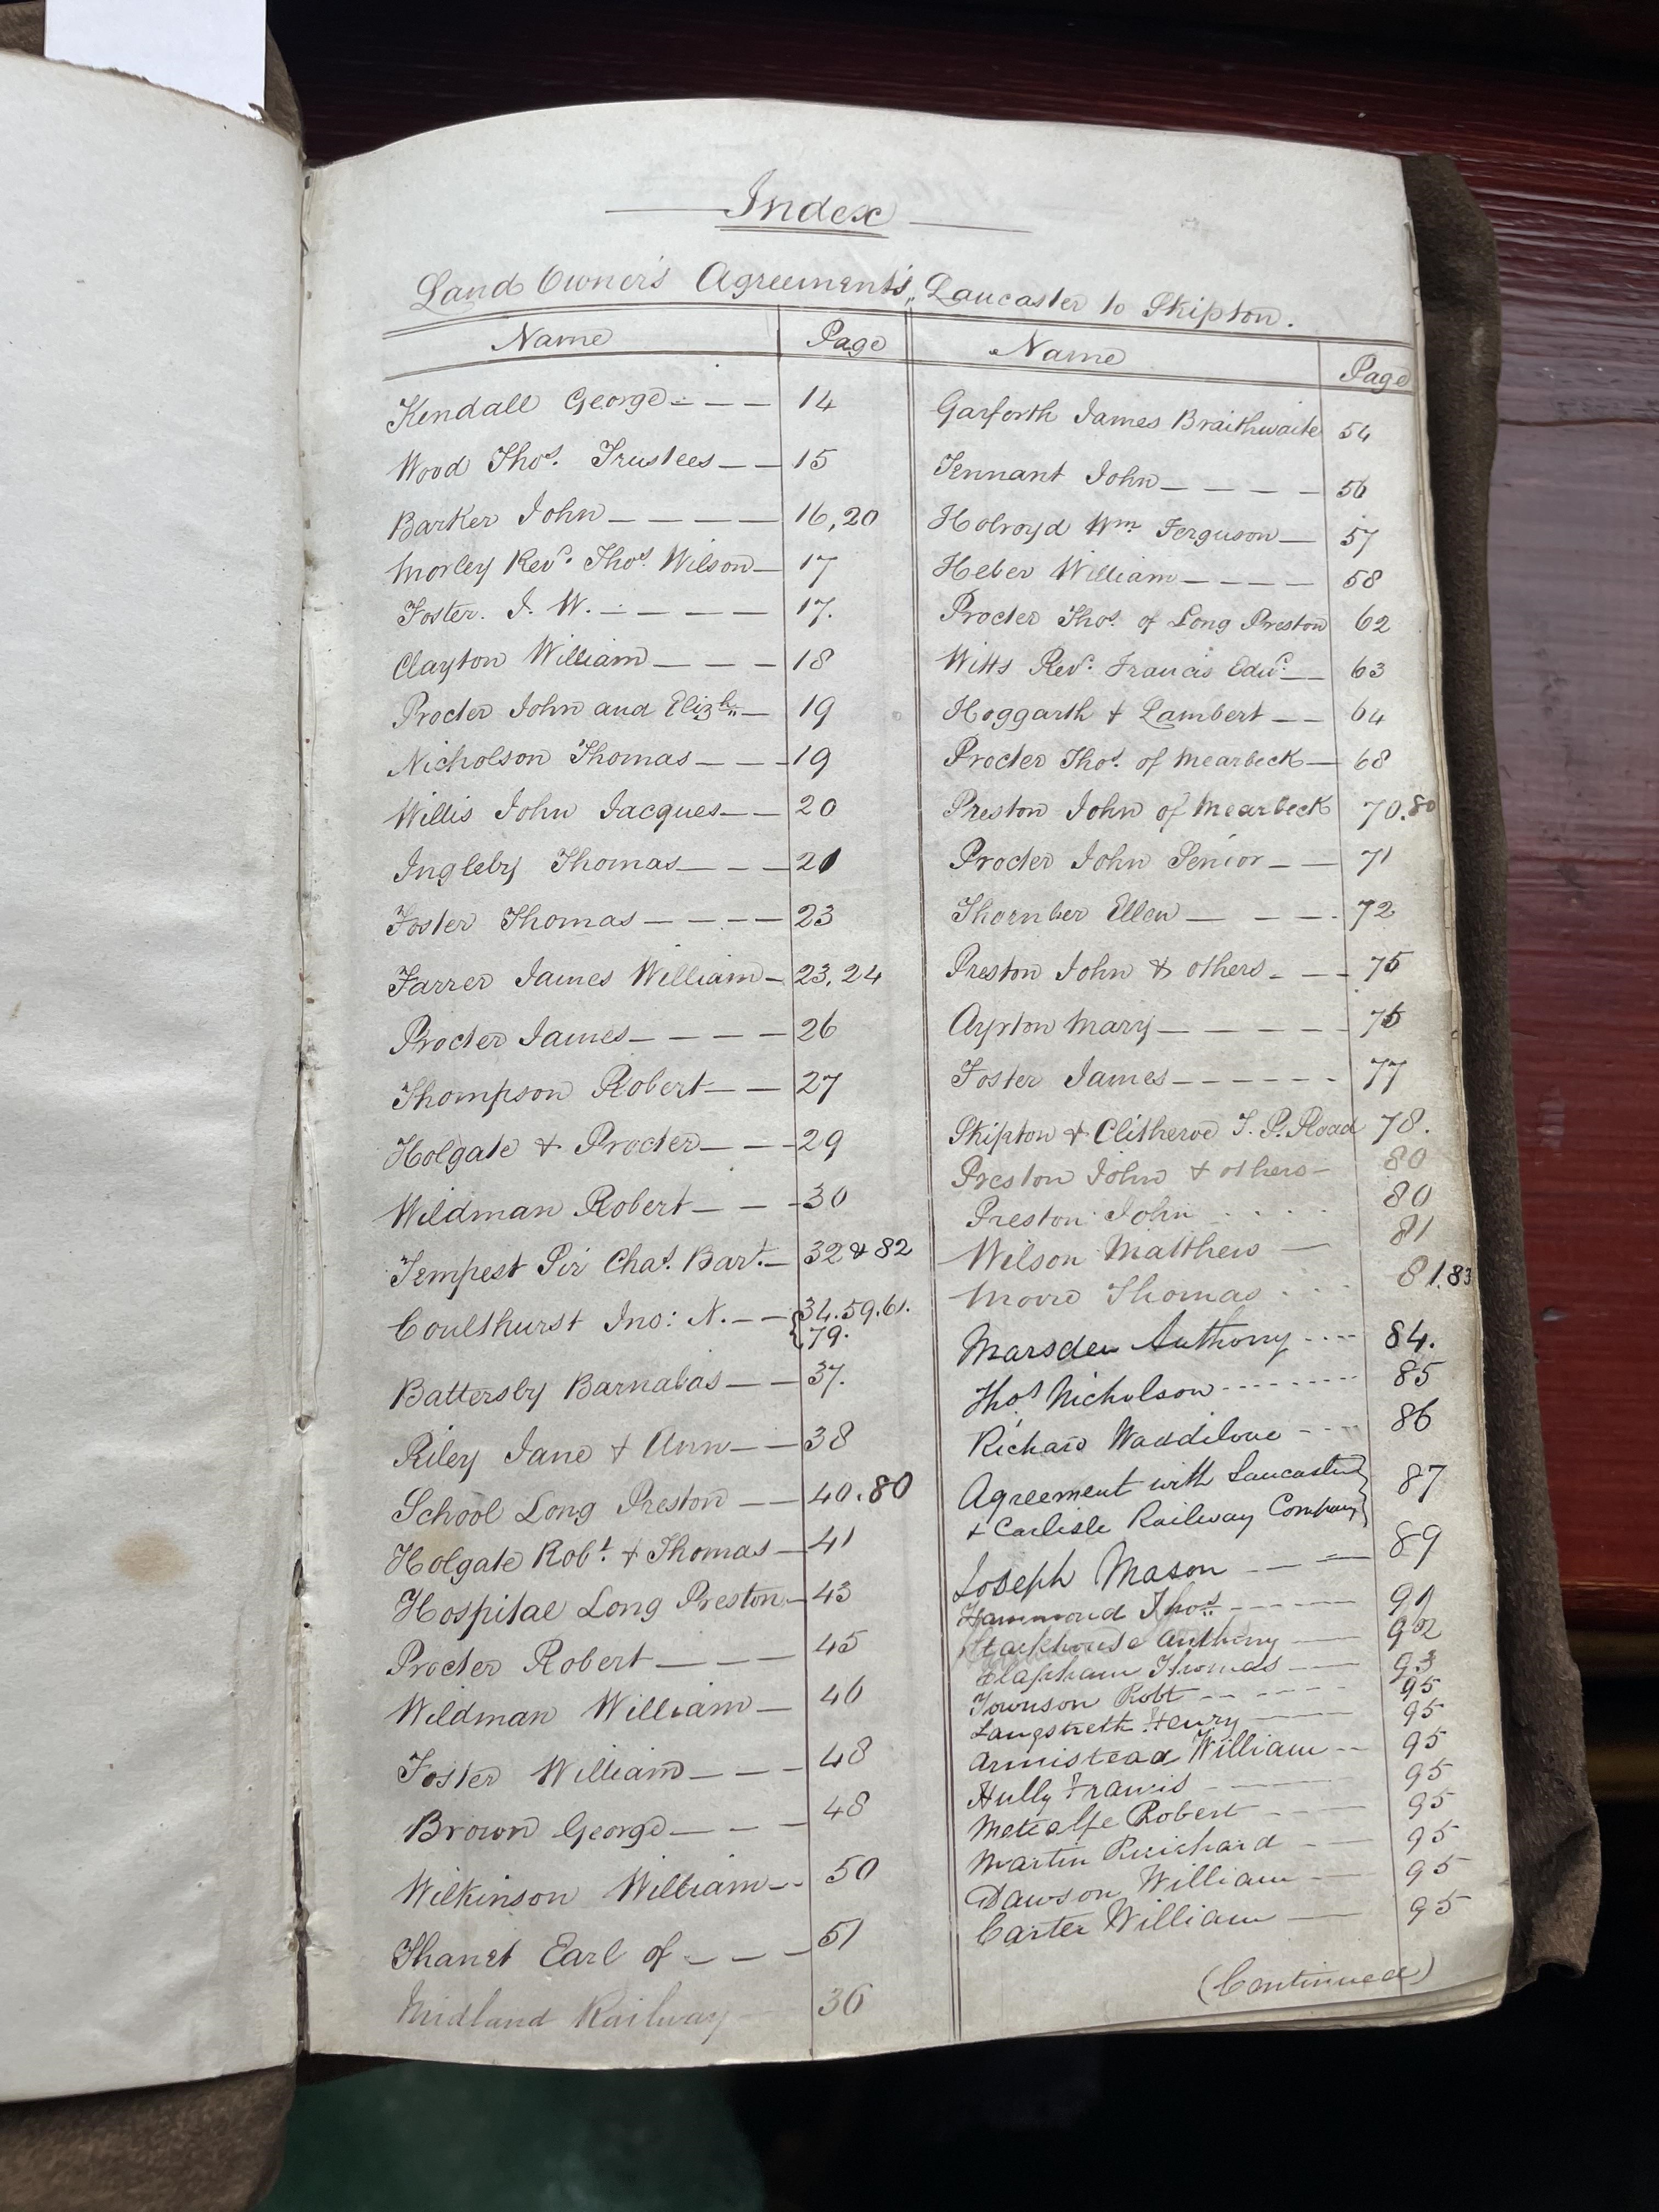 Index
Land Owner's Agreement's, Lancaster to Skipton.
Name Page
Kendall George 14
Wood Thos. Trustees 15
Barker John 16, 20
Morley Revd. Thos. Wilson 17
Foster. J. W. 17.
Clayton William 18
Procter John and Elizh. 19
Nicholson Thomas 19
Willis John Jacques 20
Ingleby Thomas 21
Foster Thomas 23
Farrer James William 23, 24
Procter James 26
Thompson Robert 27
Holgate & Procter 29
Wildman Robert 30
Tempest Sir Chas. Bart. 32 & 82
Coulthurst Jno: N. 34. 59. 61.
79.
Battersby Barnabas 37.
Riley Jane & Ann 38
School Long Preston 40. 80
Holgate Robt. & Thomas 41
Hospital Long Preston 43
Procter Robert 45
Wildman William 46
Foster William 48
Brown George 48
Wilkinson William 50
Thanet Earl of 51
Midland Railway 36
Name Page
Garforth James Braithwaite 54
Tennant John 56
Holroyd Wm Ferguson 57
Heber William 58
Procter Thos. of Long Preston 62
Witts Revd. Francis Edwd. 63
Hoggarth & Lambert 64
Procter Thos. of Mearbeck 68
Preston John of Mearbeck 70. 80
Procter John Senior 71
Thornber Ellen 72
Preston John & others 75
Ayrton Mary 76
Foster James 77
Skipton & Clitheroe T. P. Road 78.
Preston John & others 80
Preston John 80
Wilson Matthew 81
Moore Thomas 81. 83
Marsden Anthony 84.
Thos Nicholson 85
Richard Waddilove 86
Agreement with Lancaster
& Carlisle Railway Company 87
Joseph Mason 89
Hammond Thos. 91
Stackhouse Anthony 92
Clapham Thomas 93
Townson Robt 95
Langstreth Henry 95
Armistead William 95
Hully Francis 95
Metcalfe Robert 95
Martin Richard 95
Dawson William 95
Carter William 95
(Continued)